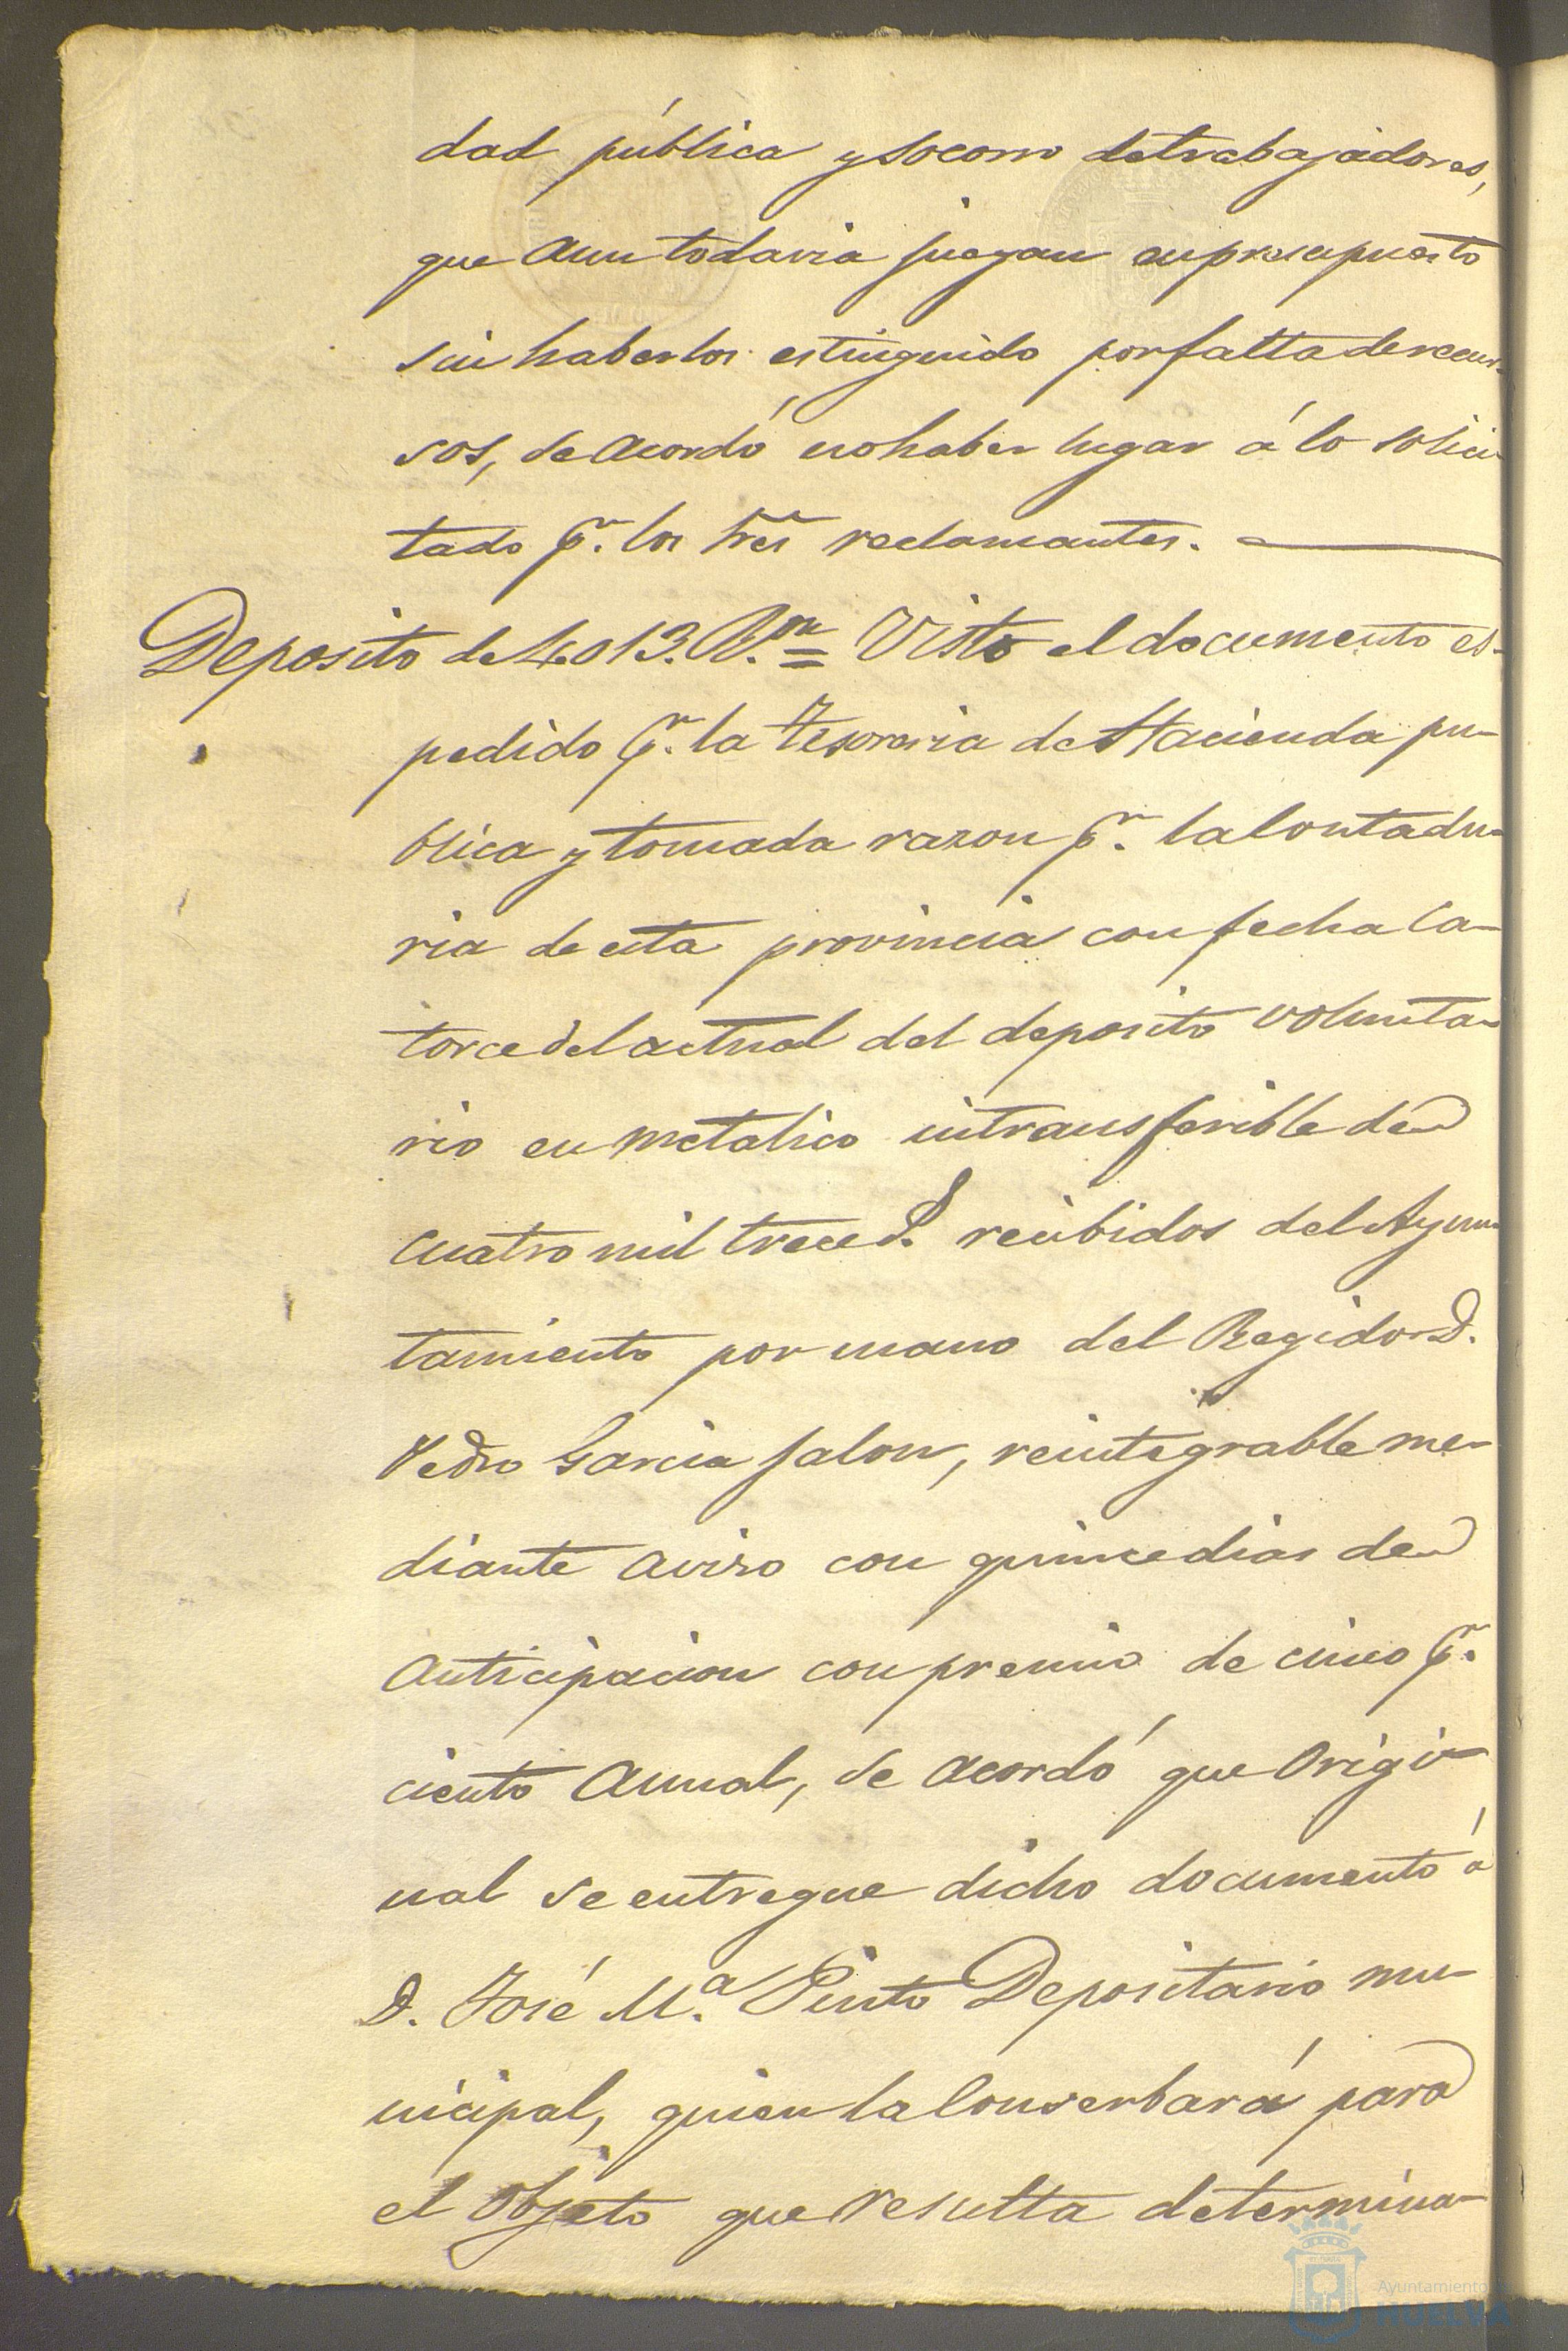 dad pública y socorro de trabajadores,
que aun todavia juegan en presupuesto
sin haberlos estinguido por falta de recur-
sos, se acordó no haber lugar á lo solici-
tado p.r los tres reclamantes.
Deposito de 4.013. R.on = Visto el documento es-
pedido p.r la Tesoreria de Hacienda pu-
blica y tomada razon p.r la Contadu-
ria de esta provincia con fecha ca-
torce del actual del deposito volunta-
rio en metalico intransferible de
cuatro mil trece r.s recibidos del Ayun-
tamiento por mano del Regidor D.
Pedro Garcia Jalon, reintegrable me-
diante aviso con quince dias de
anticipacion con premio de cinco p.r
ciento anual, se acordó que origi-
nal se entregue dicho documento á
D. José M.a Pinto Depositario mu-
nicipal, quien la Conserbará para
el objeto que resulta determina-
Ayuntamiento de
HUELVA